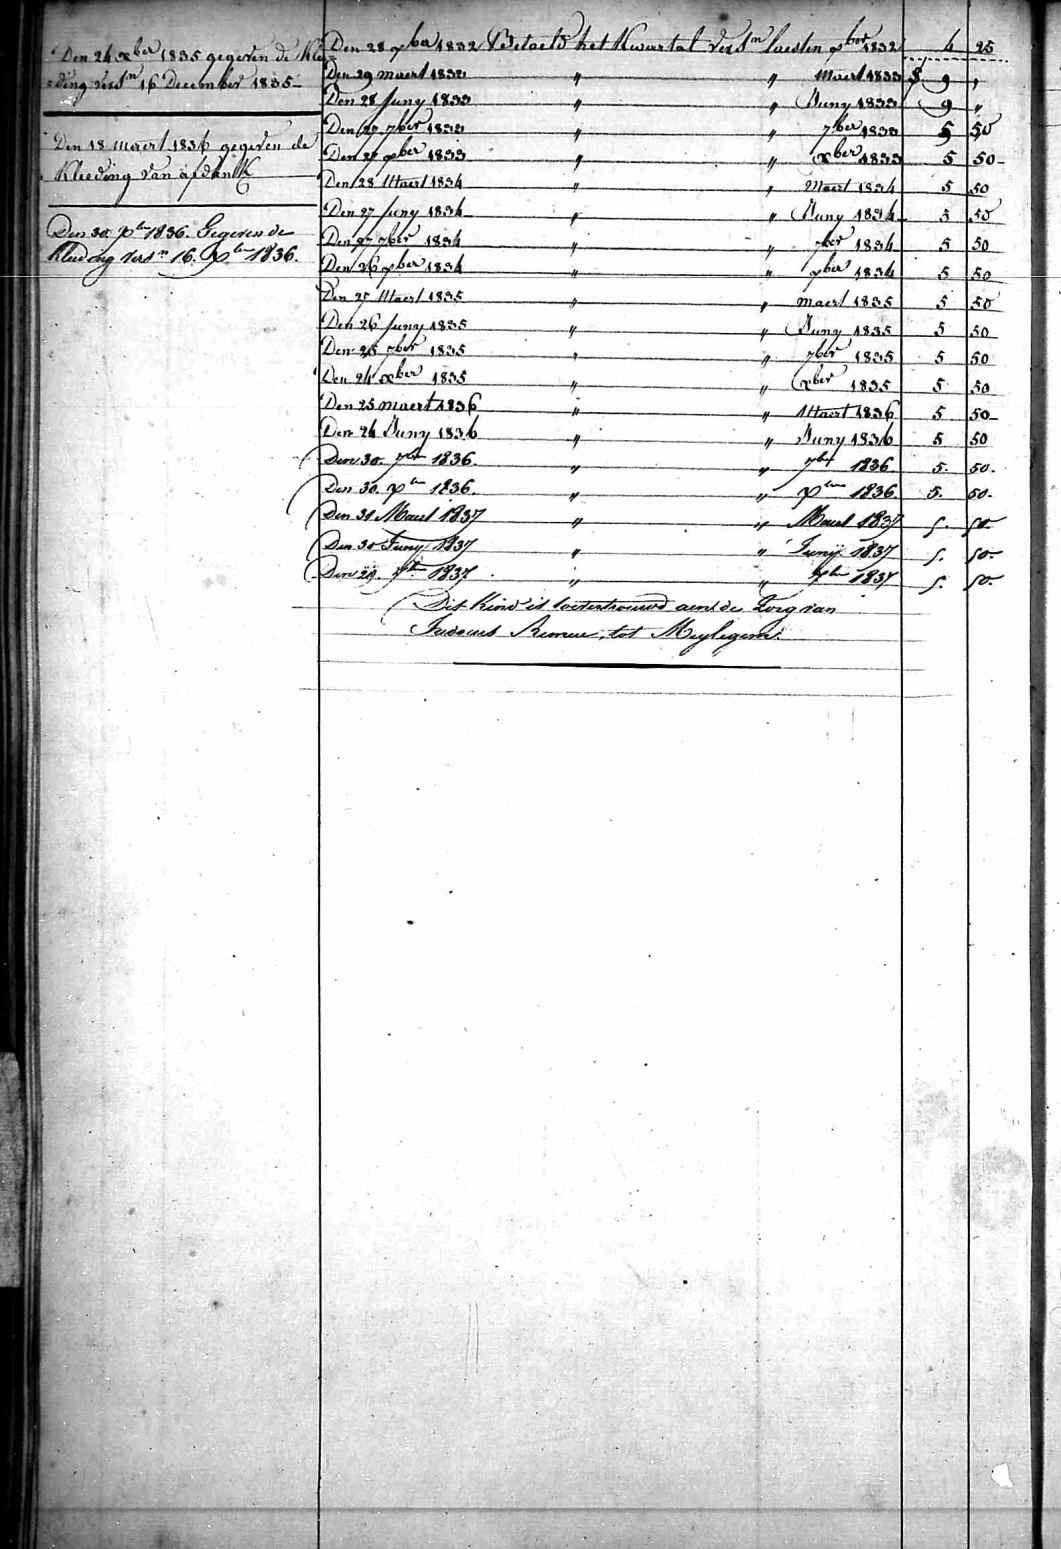 Den 24 xber 1835 gegeven de Klee
=ding vers.n 16 December 1835
Den 18 maert 1836 gegeven de
Kleeding van
Den 30. Xber 1836. Gegeven de
Kleeding vers.n 16. Xber 1836.
Den 28 xber 1832 Betaeld het Kwartal vers.n laesten xber 1832 4 25
Den 29 maert 1833 " " Maert 1833 $ 9 "
Den 28 Juny 1833 " " Juny 1833 9 "
Den 27 7ber 1833 " " 7ber 1833 5 50
Den 27 xber 1833 " " xber 1833 5 50
Den 28 Maert 1834 " " Maert 1834 5 50
Den 27 Juny 1834 " " Juny 1834 5 50
Den 27 7ber 1834 " " 7ber 1834 5 50
Den 26 xber 1834 " " xber 1834 5 50
Den 27 Maert 1835 " " maert 1835 5 50
Den 26 Juny 1835 " " Juny 1835 5 50
Den 25 7ber 1835 " " 7ber 1835 5 50
Den 24 xber 1835 " " xber 1835 5 50
Den 25 maert 1836 " " Maert 1836 5 50
Den 24 Juny 1836 " " Juny 1836 5 50
Den 30. 7ber 1836. " " 7ber 1836 5. 50.
Den 30. Xber 1836. " " Xber 1836. 5. 50.
Den 31 Maert 1837 " " Maert 1837 5. 50.
Den 30 Juny 1837 " " Junÿ 1837 5. 50.
Den 29. 7ber 1837. " " 7ber 1837 5. 50.
Dit Kind is toevertrouwd aen de Zorg van
Judocus tot Meylegem.